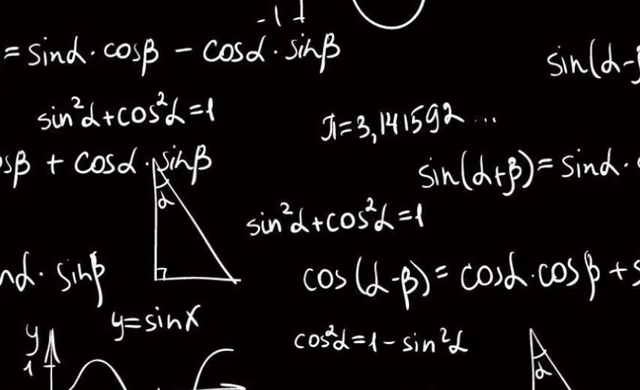 -1
= sinα · cosβ − cosα · sinβ
sin(α-β
sin²α+cos²α=1
π=3,141592...
osβ + cosα · sinβ
sin(α+β)= sinα ·
α
sin²α+cos²α=1
nα · sinβ
cos(α-β)= cosα·cosβ + s
y=sinx
y
cos²α=1-sin²α
1
α